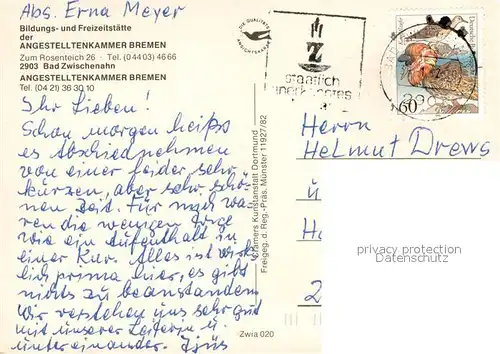 Abs. Erna Meyer
Bildungs- und Freizeitstätte
der
ANGESTELLTENKAMMER BREMEN
Zum Rosenteich 26 · Tel. (0 44 03) 46 66
2903 Bad Zwischenahn
ANGESTELLTENKAMMER BREMEN
Tel. (04 21) 36 30 10
Ihr Lieben!
Schon morgen heißt
es Abschiednehmen
von einer leider sehr
kurzen, aber sehr schö-
nen Zeit. Für mich wa-
ren die wenigen Tage
wie ein Aufenthalt in
einer Kur. Alles ist wirk-
lich prima hier, es gibt
nichts zu beanstanden
wir verstehen uns sehr gut
mit unserer Leiterin u.
untereinander.
Cramers Kunstanstalt Dortmund
Freigeg. d. Reg.-Präs. Münster 11927/82
Zwia 020
DIE QUALITÄTS
ANSICHTSKARTE
staatlich
60
Herrn
Helmut Drews
privacy protection
Datenschutz
2